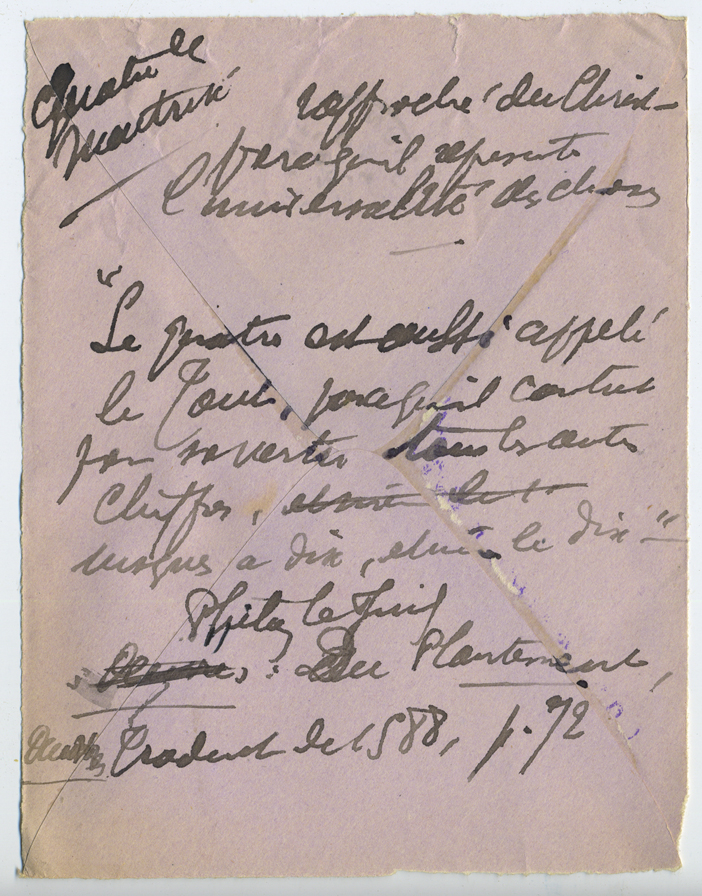 Quatre le
maitrise
rapproché du Christ
parcequ'il représente
l'universalité des choses
"Le quatre est aussi appelé
le Tout, parcequ'il contient
par sa vertu tous les autres
chiffres,
jusques à dix, et le dix"
Philon le Juif
: Du Plantement,
Œuvres Traduct de 1588, p. 72